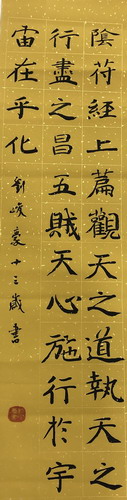 陰苻經上篇觀天之道執天之
行盡之昌五賊天心施行於宇
宙在乎化
劉峻豪十三歲書